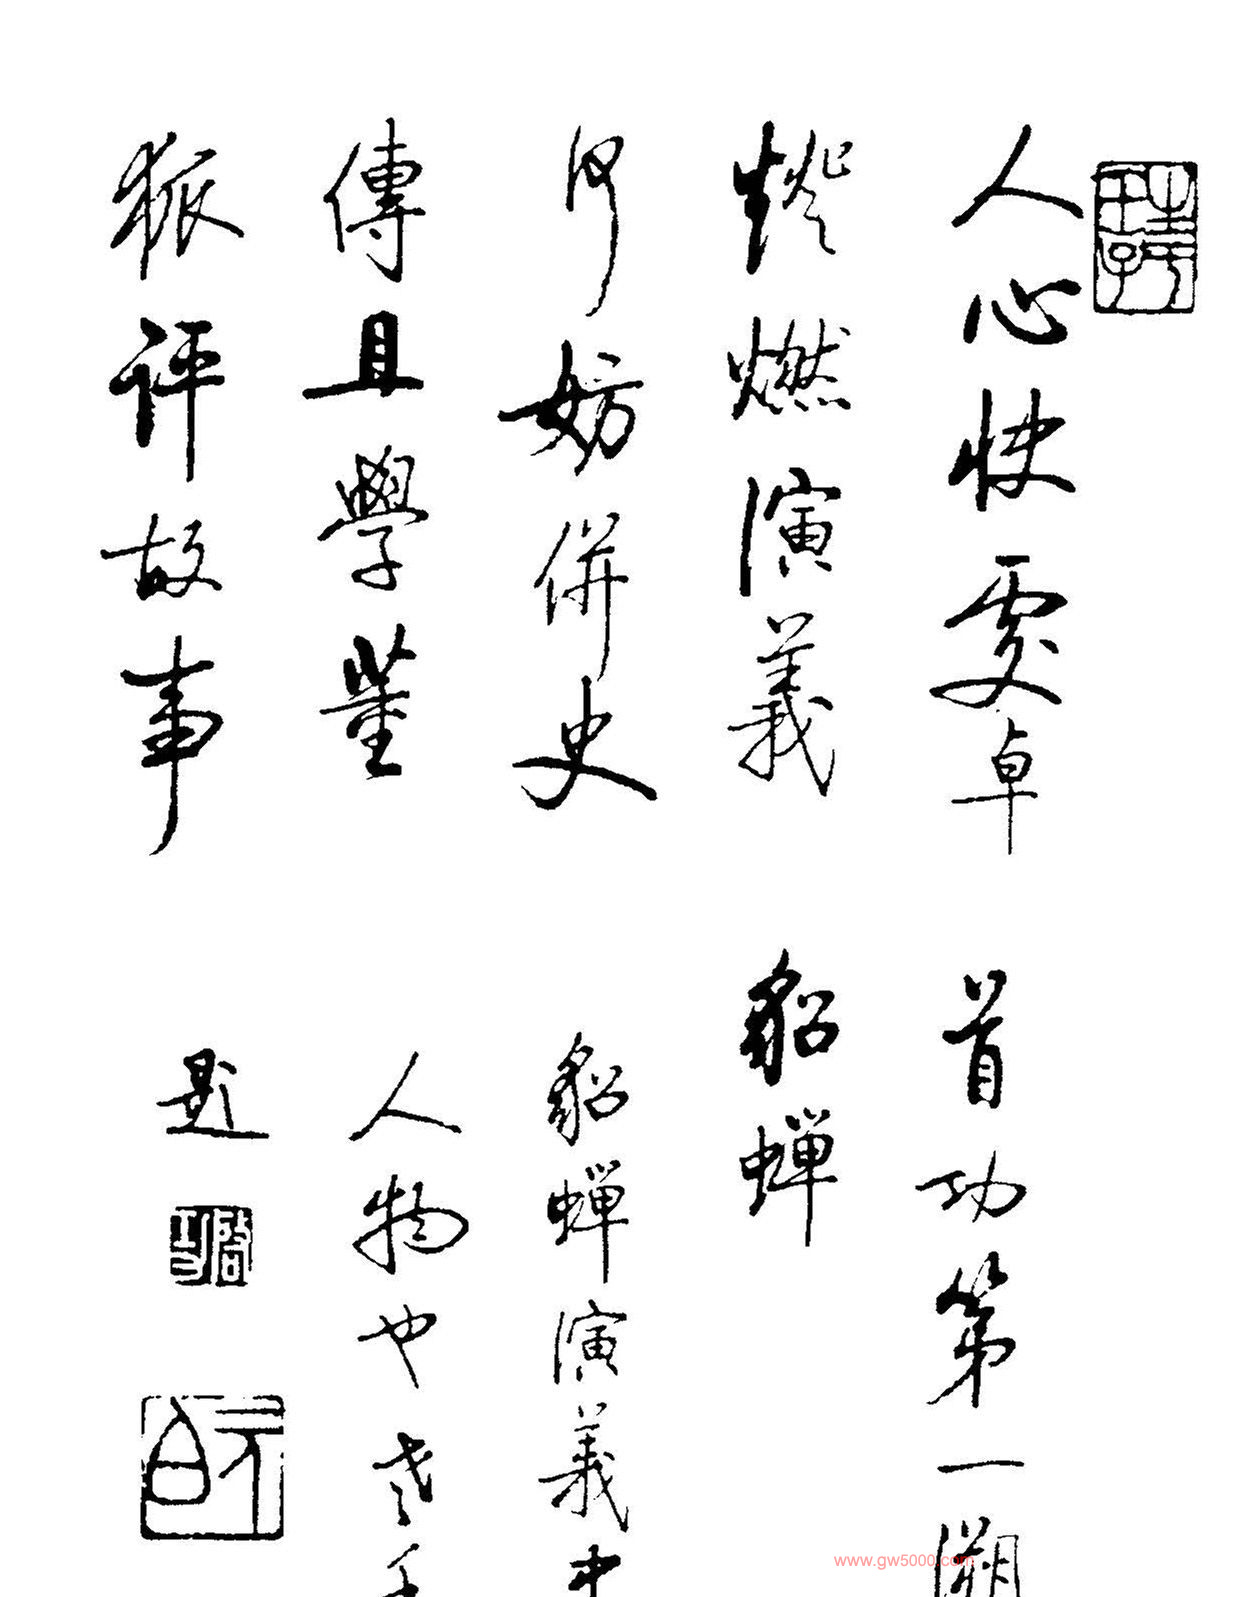 人心快處卓
燈燃演義
何妨併史
傳且學董
狐評故事
首功第一溯
貂蝉
貂蝉演義中
人物也
題
www.gw5000.com